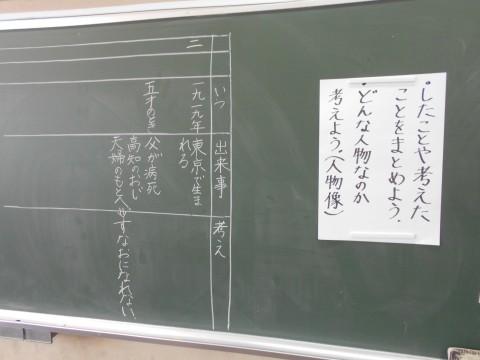 ・したことや考えた
ことをまとめよう。
・どんな人物なのか
考えよう。（人物像）
いつ
出来事
考え
一九一九年
東京で生ま
れる
五才のとき
父が病死
高知のおじ
夫婦のもとへ
すなおになれない。
二